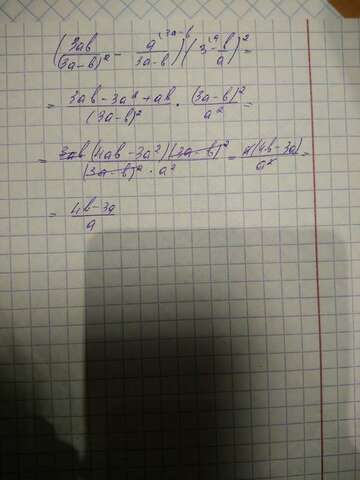 (3ab/(3a-b)² - a^(3a-b/3a-b)(3^(a - b/a)²=
= 3ab-3a²+ab/(3a-b)² · (3a-b)²/a² =
= 3ab(4ab-3a²)(3a-b)²/(3a-b)²·a² = a(4b-3a)/a² =
= 4b-3a/a